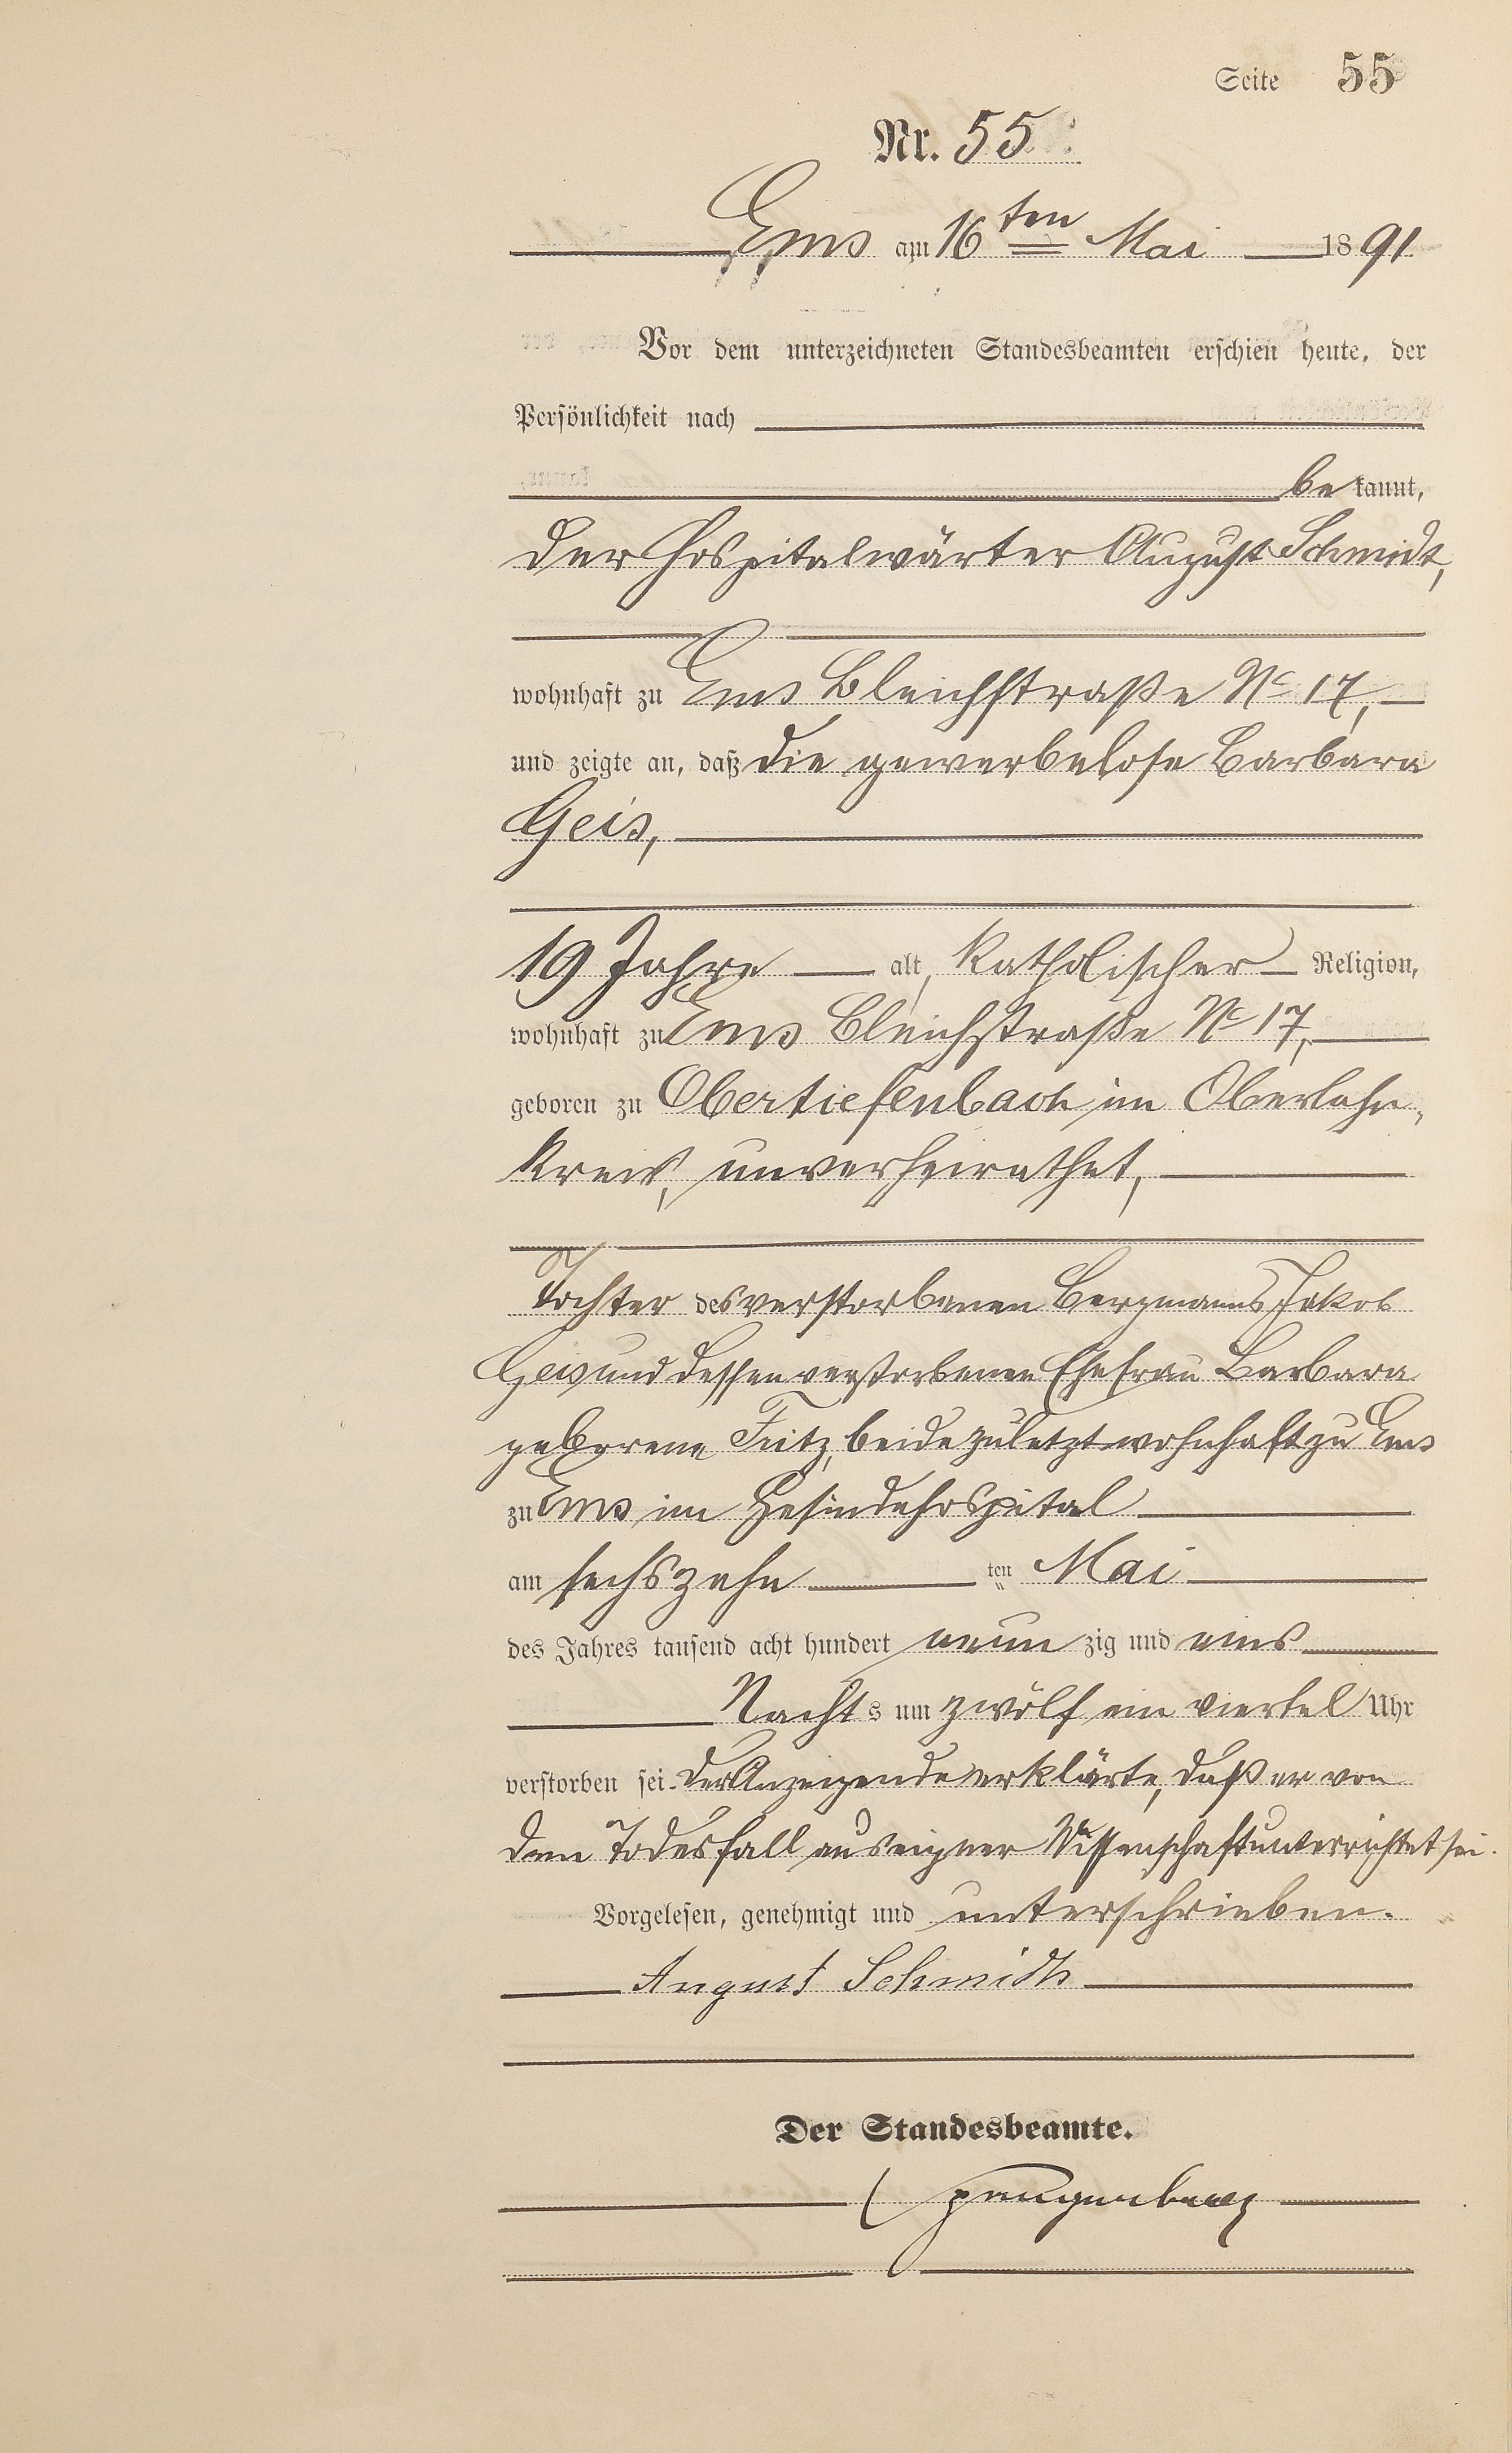 Seite 55
Nr. 55
Ems am 16ten Mai 1891
Vor dem unterzeichneten Standesbeamten erschien heute, der
Persönlichkeit nach
bekannt,
der Hospitalwärter August Schmidt,
wohnhaft zu Ems Bleichstraße No 17,
und zeigte an, daß die gewerbelose Barbara
Geis,
19 Jahre alt, katholischer Religion,
wohnhaft zu Ems Bleichstraße No 17,
geboren zu Obertiefenbach im Oberlahn-
kreis, unverheirathet,
Tochter des verstorbenen Bergmanns Jakob
Geis und dessen verstorbenen Ehefrau Barbara
geborene Fritz, beide zuletzt wohnhaft zu Ems
zu Ems im Gesindehospital
am sechszehn ten Mai
des Jahres tausend acht hundert neunzig und eins
Nachts um zwölf ein viertel Uhr
verstorben sei. Der Anzeigende erklärte, daß er von
dem Todesfall aus eigner Wissenschaft unterrichtet sei.
Vorgelesen, genehmigt und unterschrieben.
August Schmidt
Der Standesbeamte.